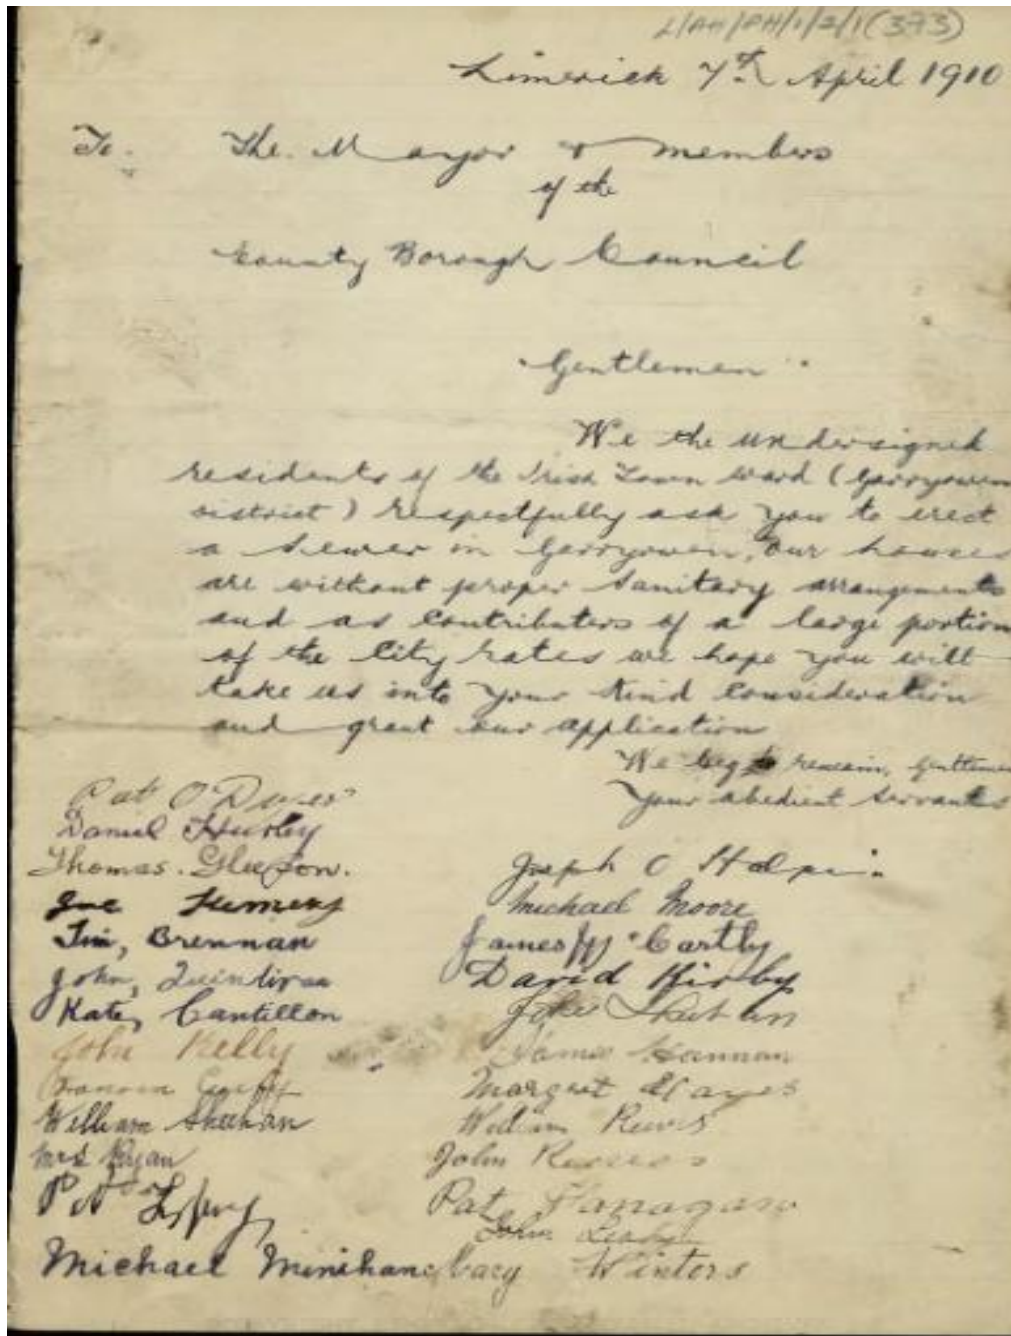 L/AH/PH/1/2/1(373)
Limerick 7th April 1910
To. The. Mayor & members
of the
County Borough Council
"Gentlemen"
We the undersigned
residents of the Irish Town ward (Garryowen
District) respectfully ask you to erect
a sewer in Garryowen, our houses
are without proper sanitary arrangements
and as contributors of a large portion
of the City rates we hope you will
take us into your kind consideration
and grant our application
We beg to remain, gentlemen
Your obedient servants
Pat O'Dwyer
Daniel Hurley
Thomas. Gleeson.
Joe
Tim, Brennan
John,
Kate, Cantillon
John Kelly
William Sheehan
Mrs Ryan
Michael Minihane
Joseph O Halpin.
Michael Moore
James Mc Carthy
David Kirby
John Sheehan
James Hannan
Margret Hayes
William
John
Pat Flanagan
John Leahy
Winters